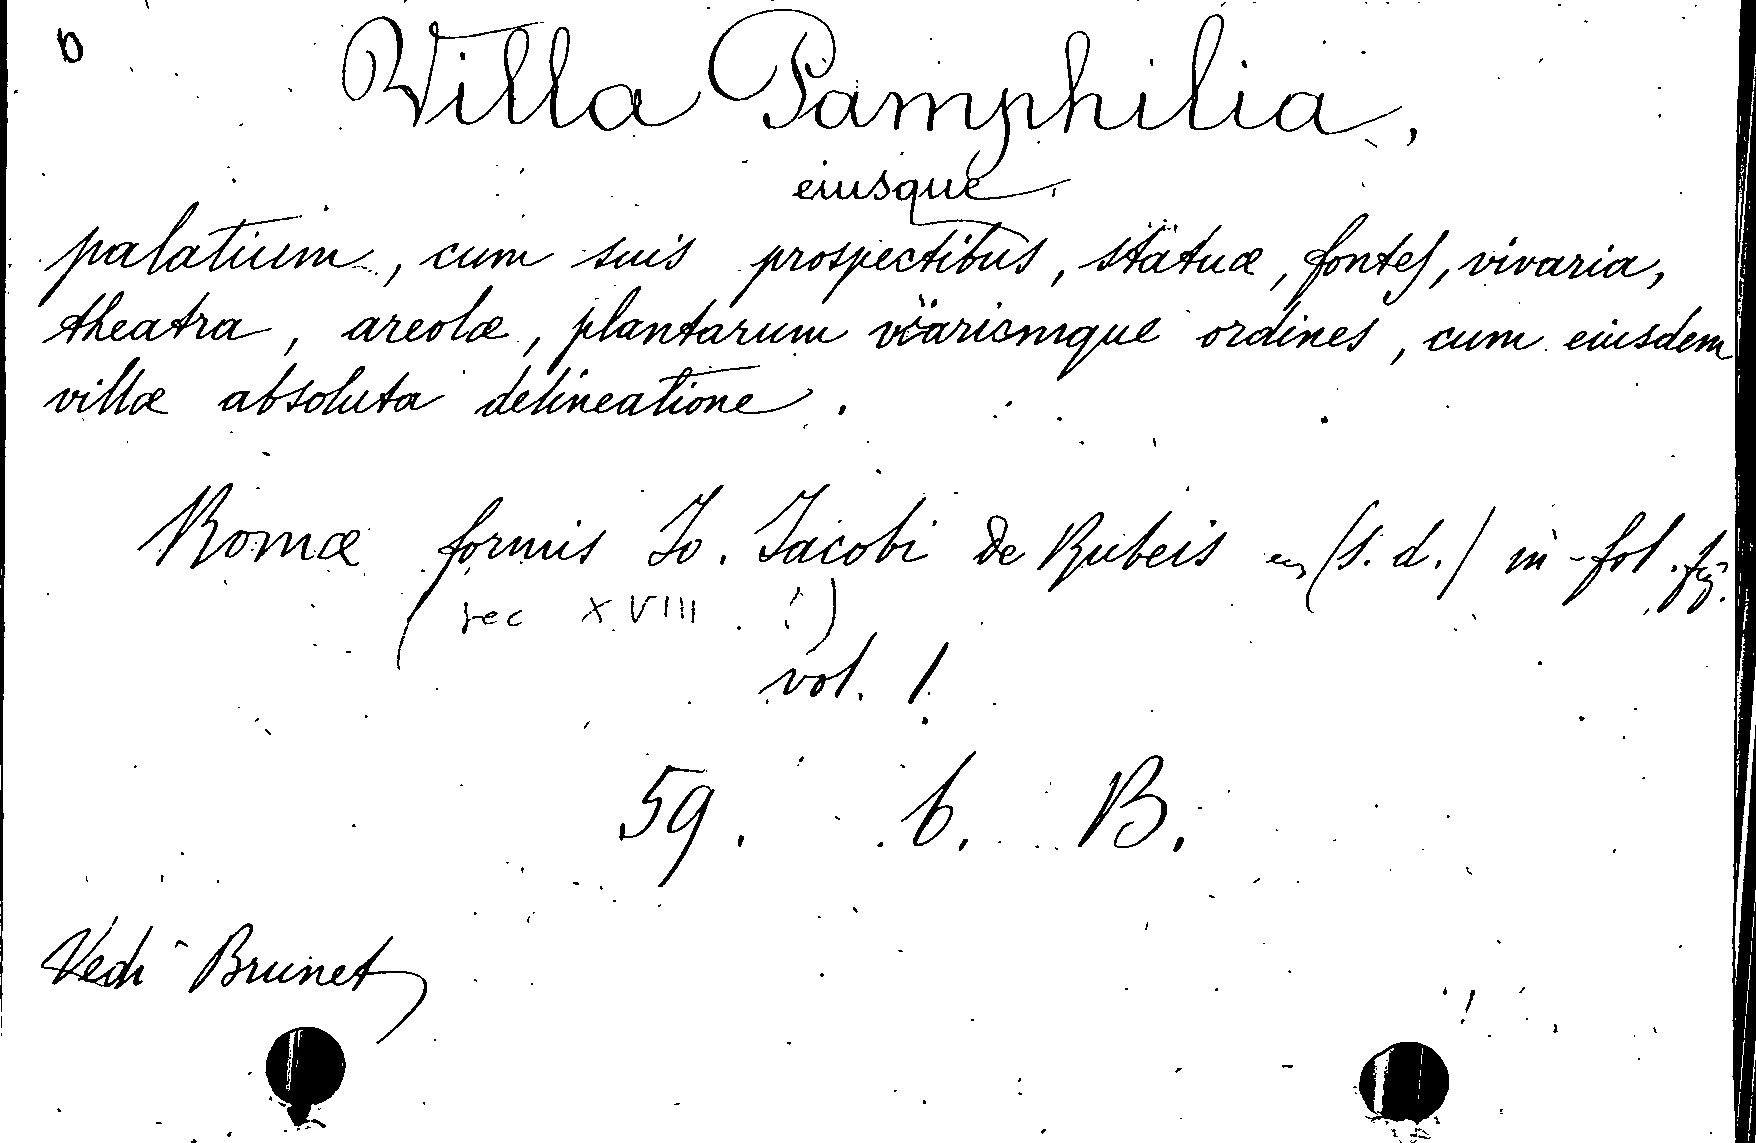 b
Villa Pamphilia,
eiusque
palatium, cum suis prospectibus, statuæ, fontes, vivaria,
theatra, areolæ, plantarum viarumque ordines, cum eiusdem
villæ absoluta delineatione.
Romæ formis Jo. Jacobi de Rubeis (s. d.) in-fol. fig.
(sec XVIII ?)
vol. 1
59. 6. B.
Vedi Brunet